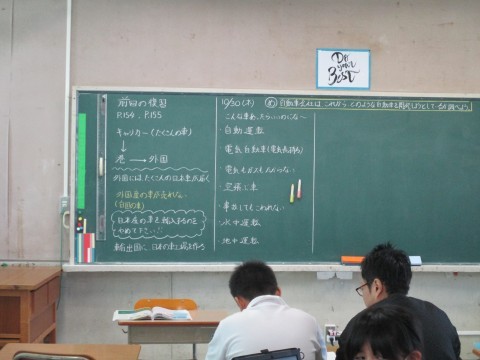 Do
your
Best
前回の復習
P.154、P.155
キャリカー(たくさんの車)
↓
港 → 外国
外国にはたくさんの日本車が届く
外国産の車が売れない
(自国の車)
日本産の車を輸入するのを
やめて下さい!!
10/30(木)
め 自動車会社は、これから、どのような自動車を開発しようとしているか調べよう。
こんな車あったらいいのにな〜
・自動運転
・電気自動車(電気長持ち)
・電気もガスもへらない
・空飛ぶ車
・事故してもこわれない
・水中運転
・地中運転